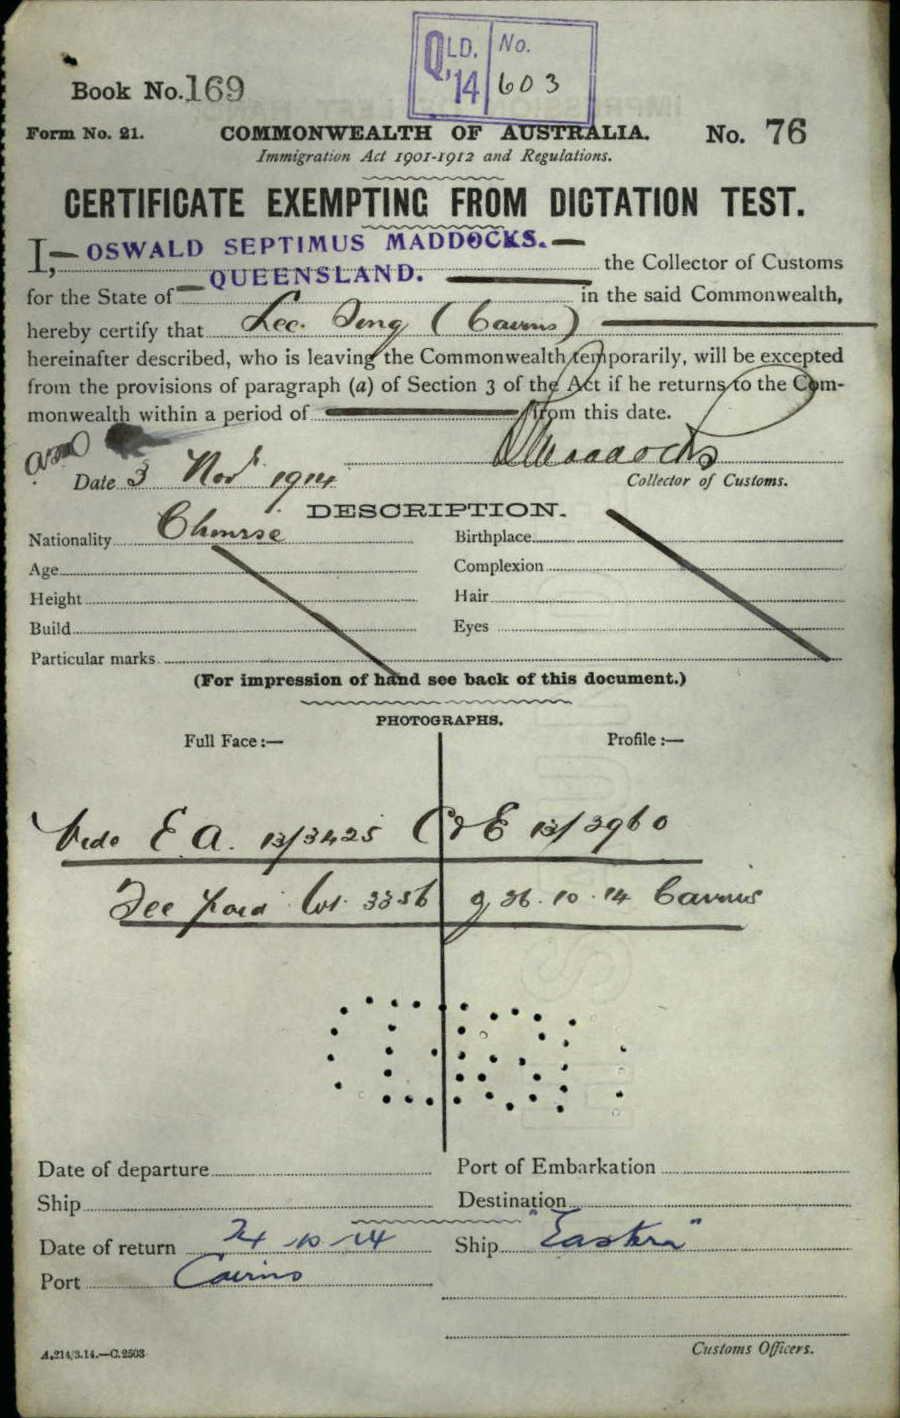 QLD. '14 No. 603
Book No. 169
Form No. 21. COMMONWEALTH OF AUSTRALIA. No. 76
Immigration Act 1901-1912 and Regulations.
CERTIFICATE EXEMPTING FROM DICTATION TEST.
I, OSWALD SEPTIMUS MADDOCKS. the Collector of Customs
for the State of QUEENSLAND. in the said Commonwealth,
hereby certify that (Cairns)
hereinafter described, who is leaving the Commonwealth temporarily, will be excepted
from the provisions of paragraph (a) of Section 3 of the Act if he returns to the Com-
monwealth within a period of from this date.
Date 3 Novr 1914 Collector of Customs.
DESCRIPTION.
Nationality Chinese Birthplace
Age Complexion
Height Hair
Build Eyes
Particular marks
(For impression of hand see back of this document.)
PHOTOGRAPHS.
Full Face:— Profile:—
Vide E A. 13/3425 C & E 13/3960
Fee paid 3356 26.10.14 Cairns
Date of departure Port of Embarkation
Ship Destination
Date of return 24.10.14 Ship "Eastern"
Port Cairns
A.214/3.14.—C.2503 Customs Officers.